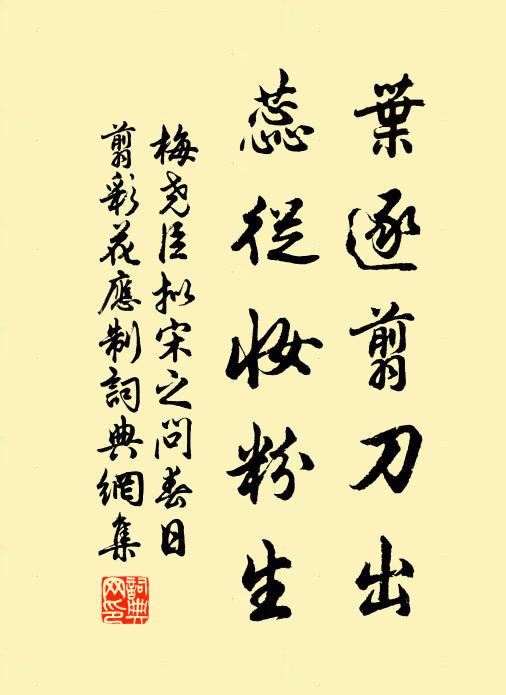 葉逐剪刀出
蕊從妝粉生
梅堯臣拟宋之問春日
剪彩花應制詞典網集
詞典网印